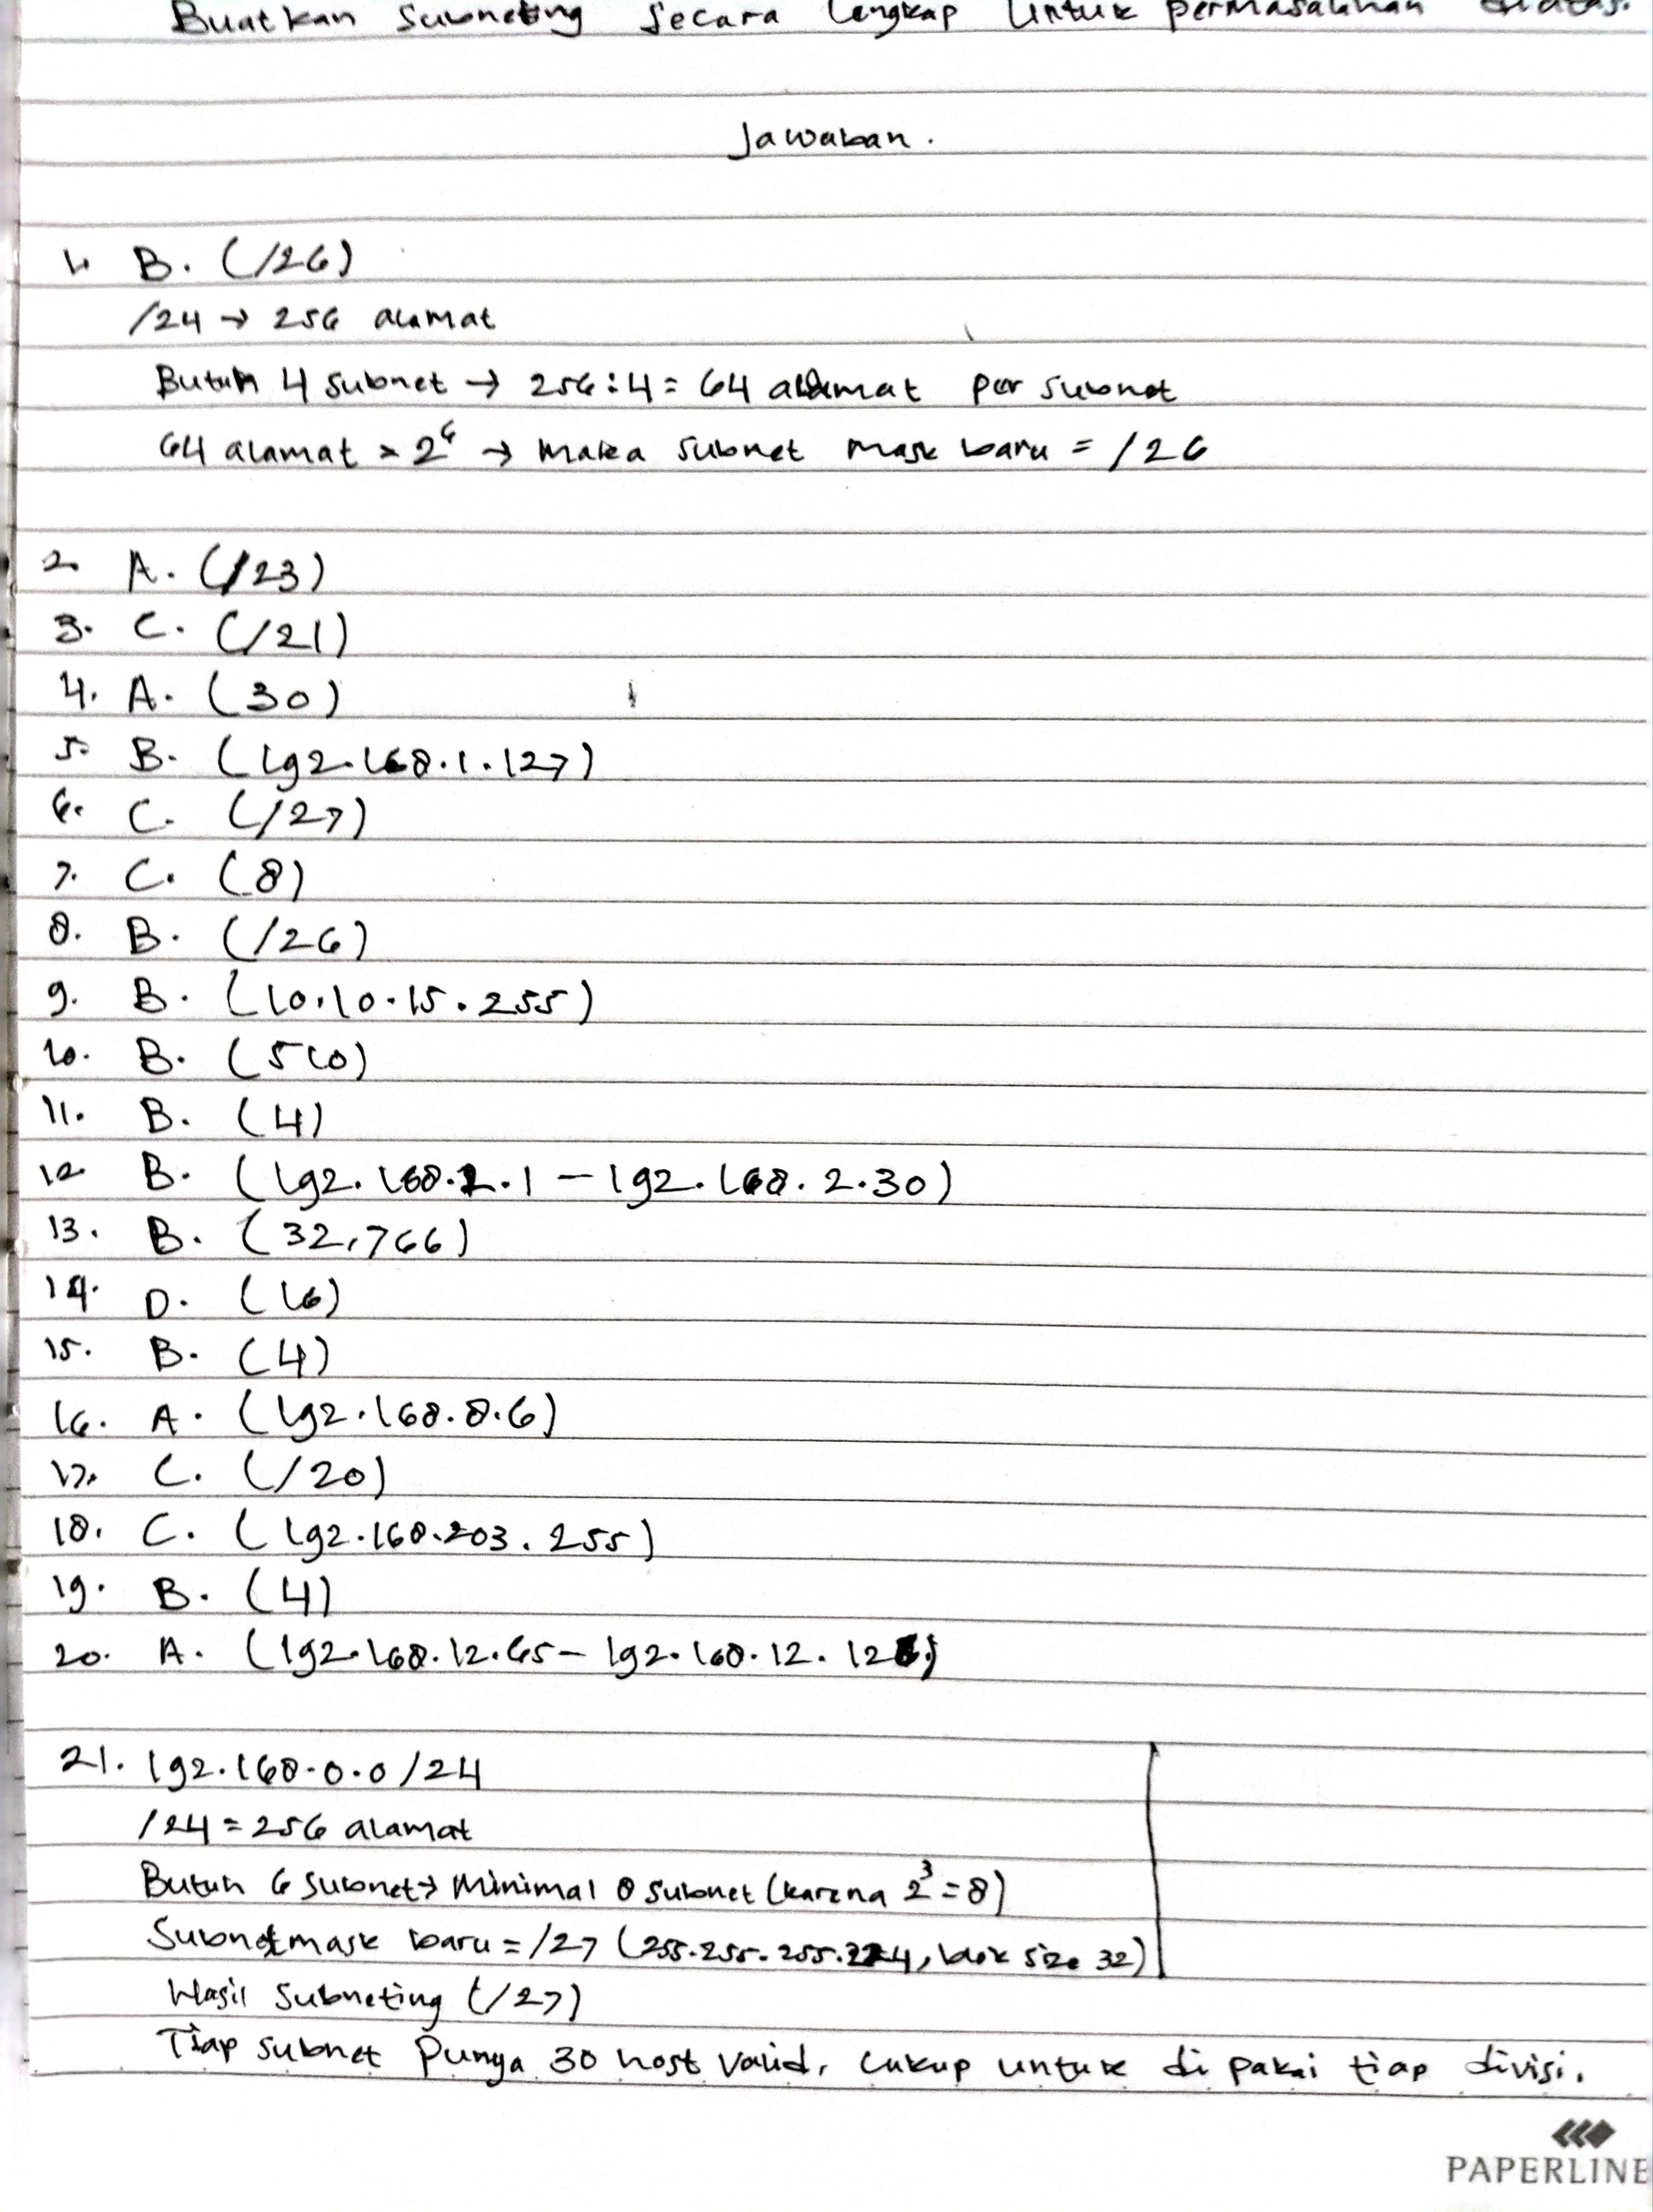 Buatkan Subneting Secara Lengkap Untuk permasalahan diatas.
Jawaban.
1. B. (/26)
/24 → 256 alamat
Butuh 4 subnet → 256:4 = 64 alamat per subnet
64 alamat = 2⁶ → Maka Subnet Mask baru = /26
2. A. (/23)
3. C. (/21)
4. A. (30)
5. B. (192.168.1.127)
6. C. (/27)
7. C. (8)
8. B. (/26)
9. B. (10.10.15.255)
10. B. (510)
11. B. (4)
12. B. (192.168.2.1 – 192.168.2.30)
13. B. (32,766)
14. D. (16)
15. B. (4)
16. A. (192.168.8.6)
17. C. (/20)
18. C. (192.168.203.255)
19. B. (4)
20. A. (192.168.12.65 – 192.168.12.126)
21. 192.168.0.0/24
/24 = 256 alamat
Butuh 6 Subnet → Minimal 8 Subnet (karena 2³ = 8)
Subnetmask baru = /27 (255.255.255.224, blok size 32)
Hasil Subneting (/27)
Tiap subnet Punya 30 host Valid, Cukup untuk di pakai tiap divisi.
PAPERLINE